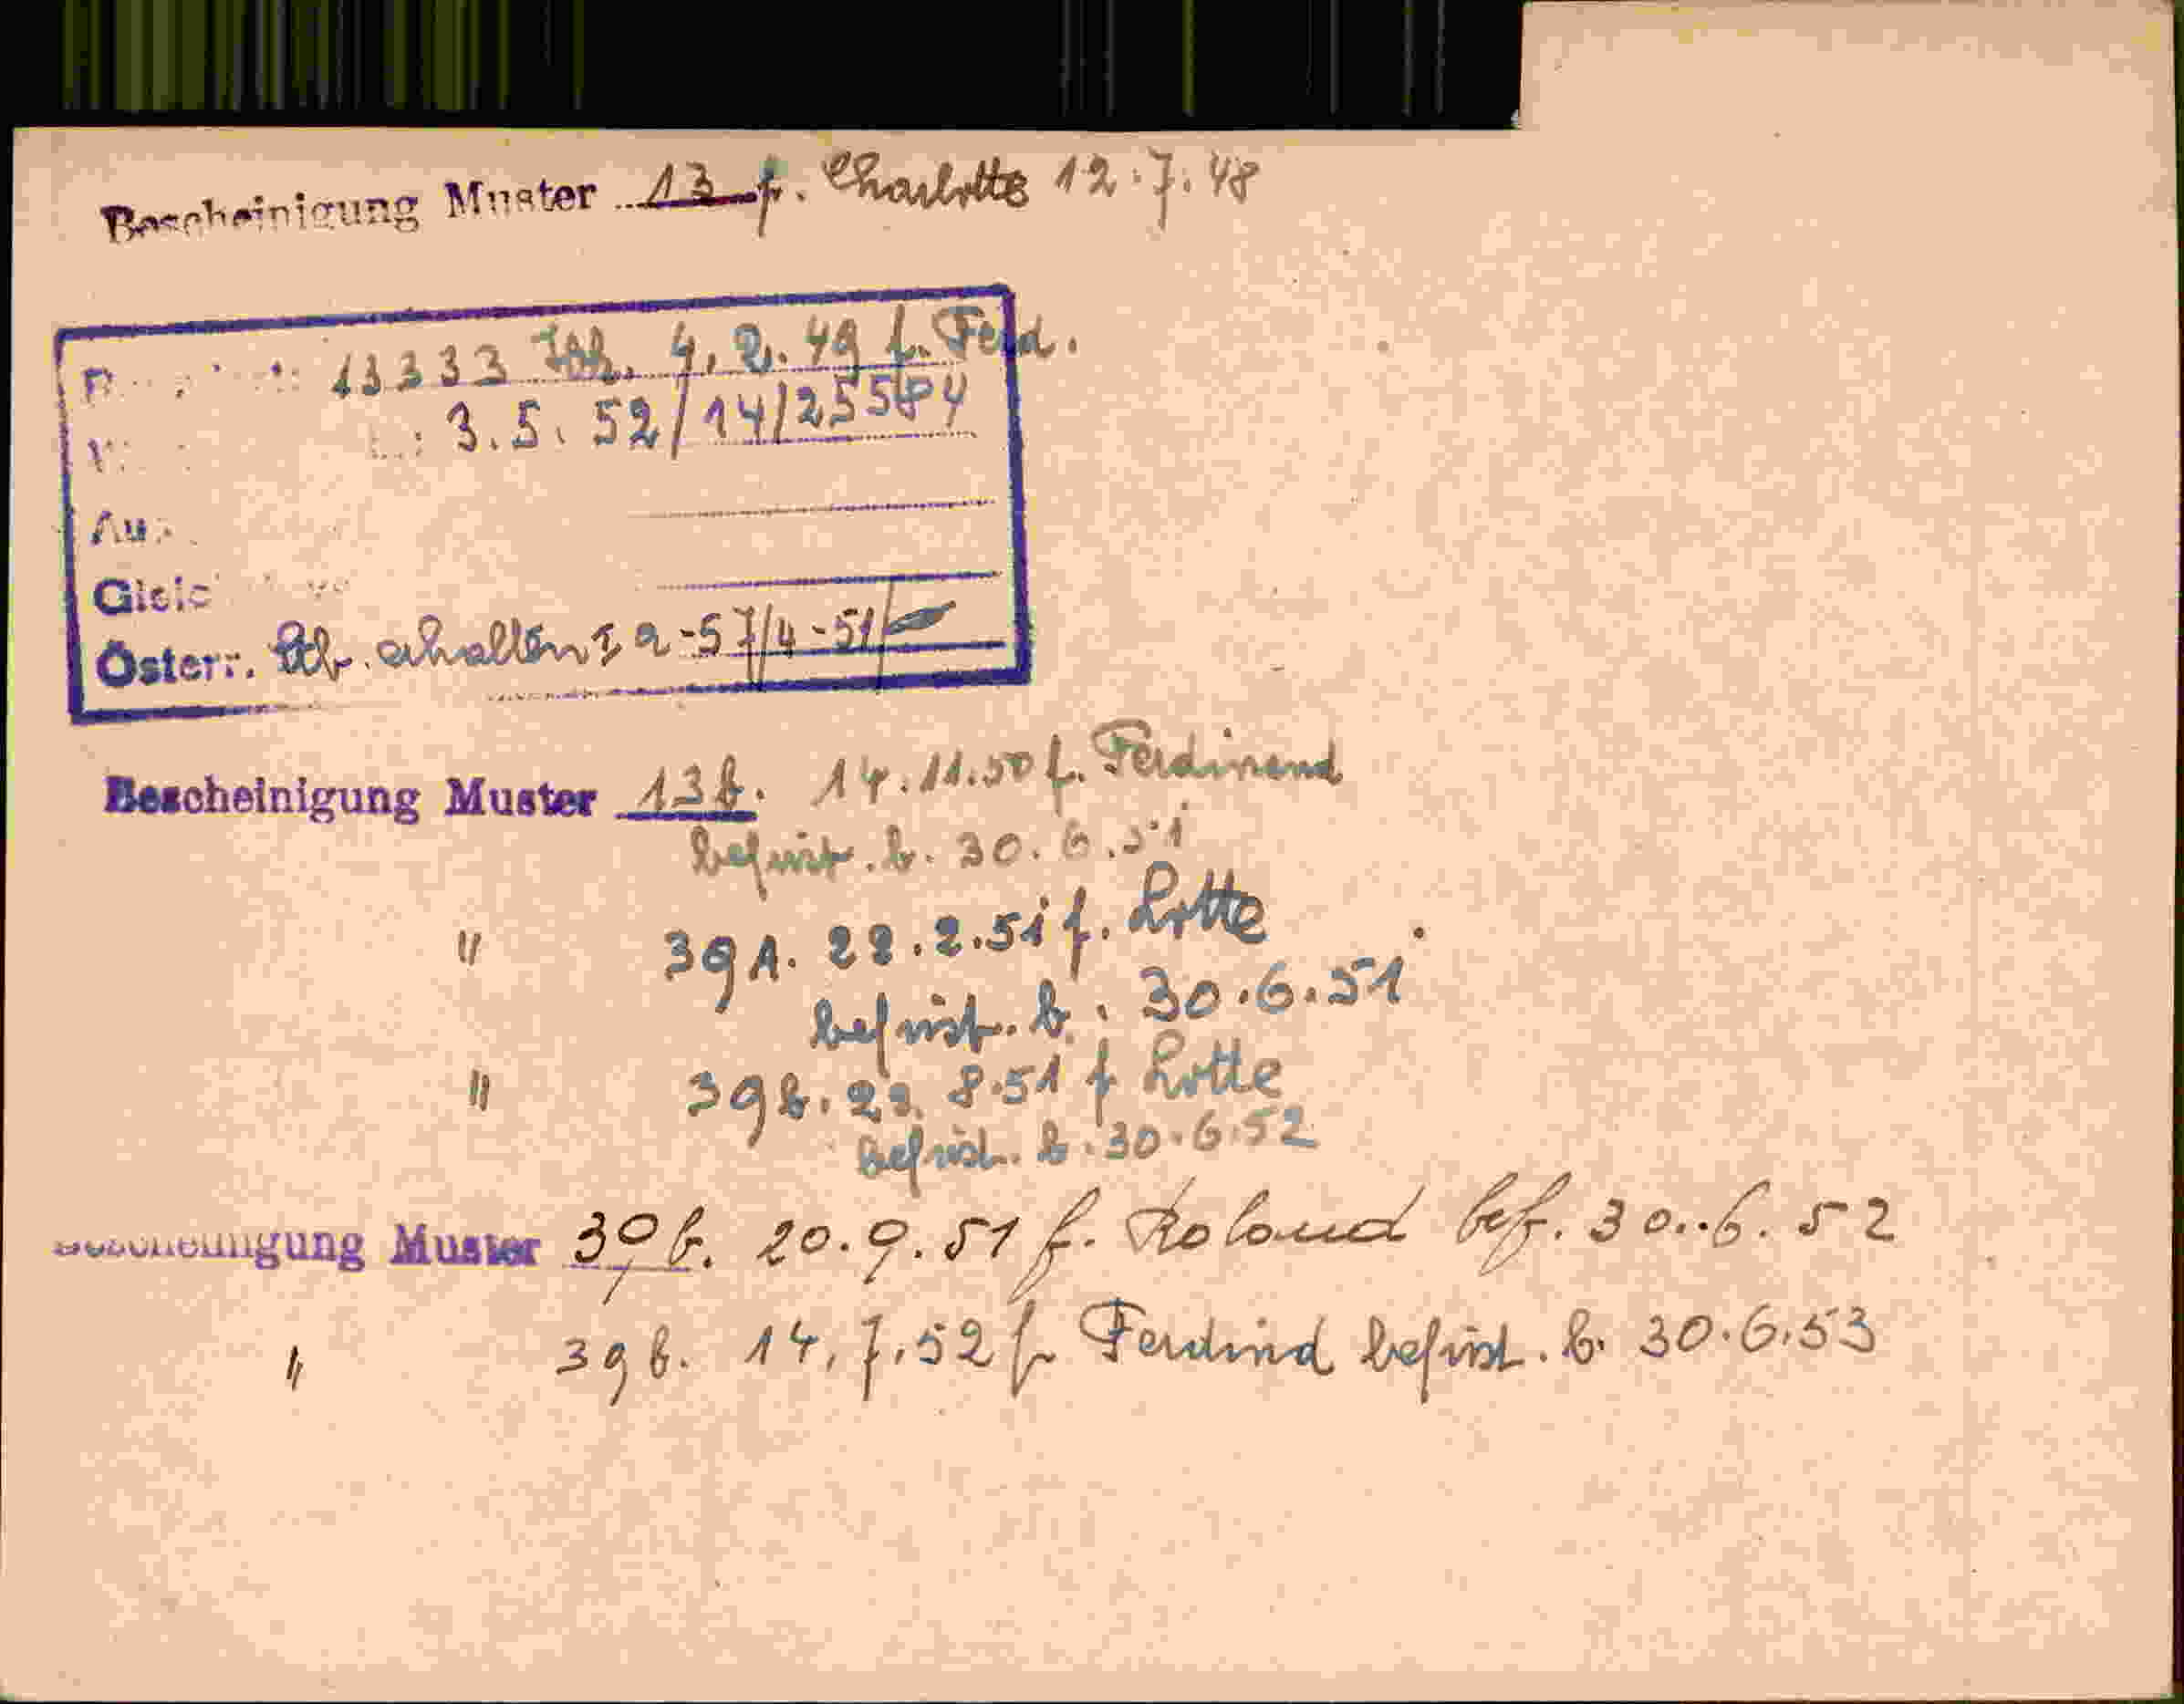 Bescheinigung Muster 13 f. Charlotte 12.7.48
13333 4.2.49 f. Ferd.
3.5.52/14/25584
Österr. erhalten 2-57/4-51/
Bescheinigung Muster 13b. 14.11.50 f. Ferdinand
befrist. b. 30.6.51
" 39A. 22.2.51 f. Lotte
befrist. b. 30.6.51
" 39b. 22.8.51 f Lotte
befrist. b. 30.6.52
Bescheinigung Muster 39b. 20.9.51 f. Roland bef. 30.6.52
" 39b. 14.7.52 f Ferdind befrist. b. 30.6.53